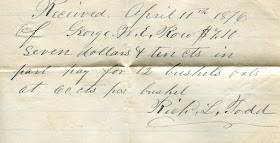 Received, April 11th 1876
of George W. E. Row $7.10
Seven dollars & ten cts in
part pay for 12 bushels oats
at 60 cts per bushel
Richd L, Todd